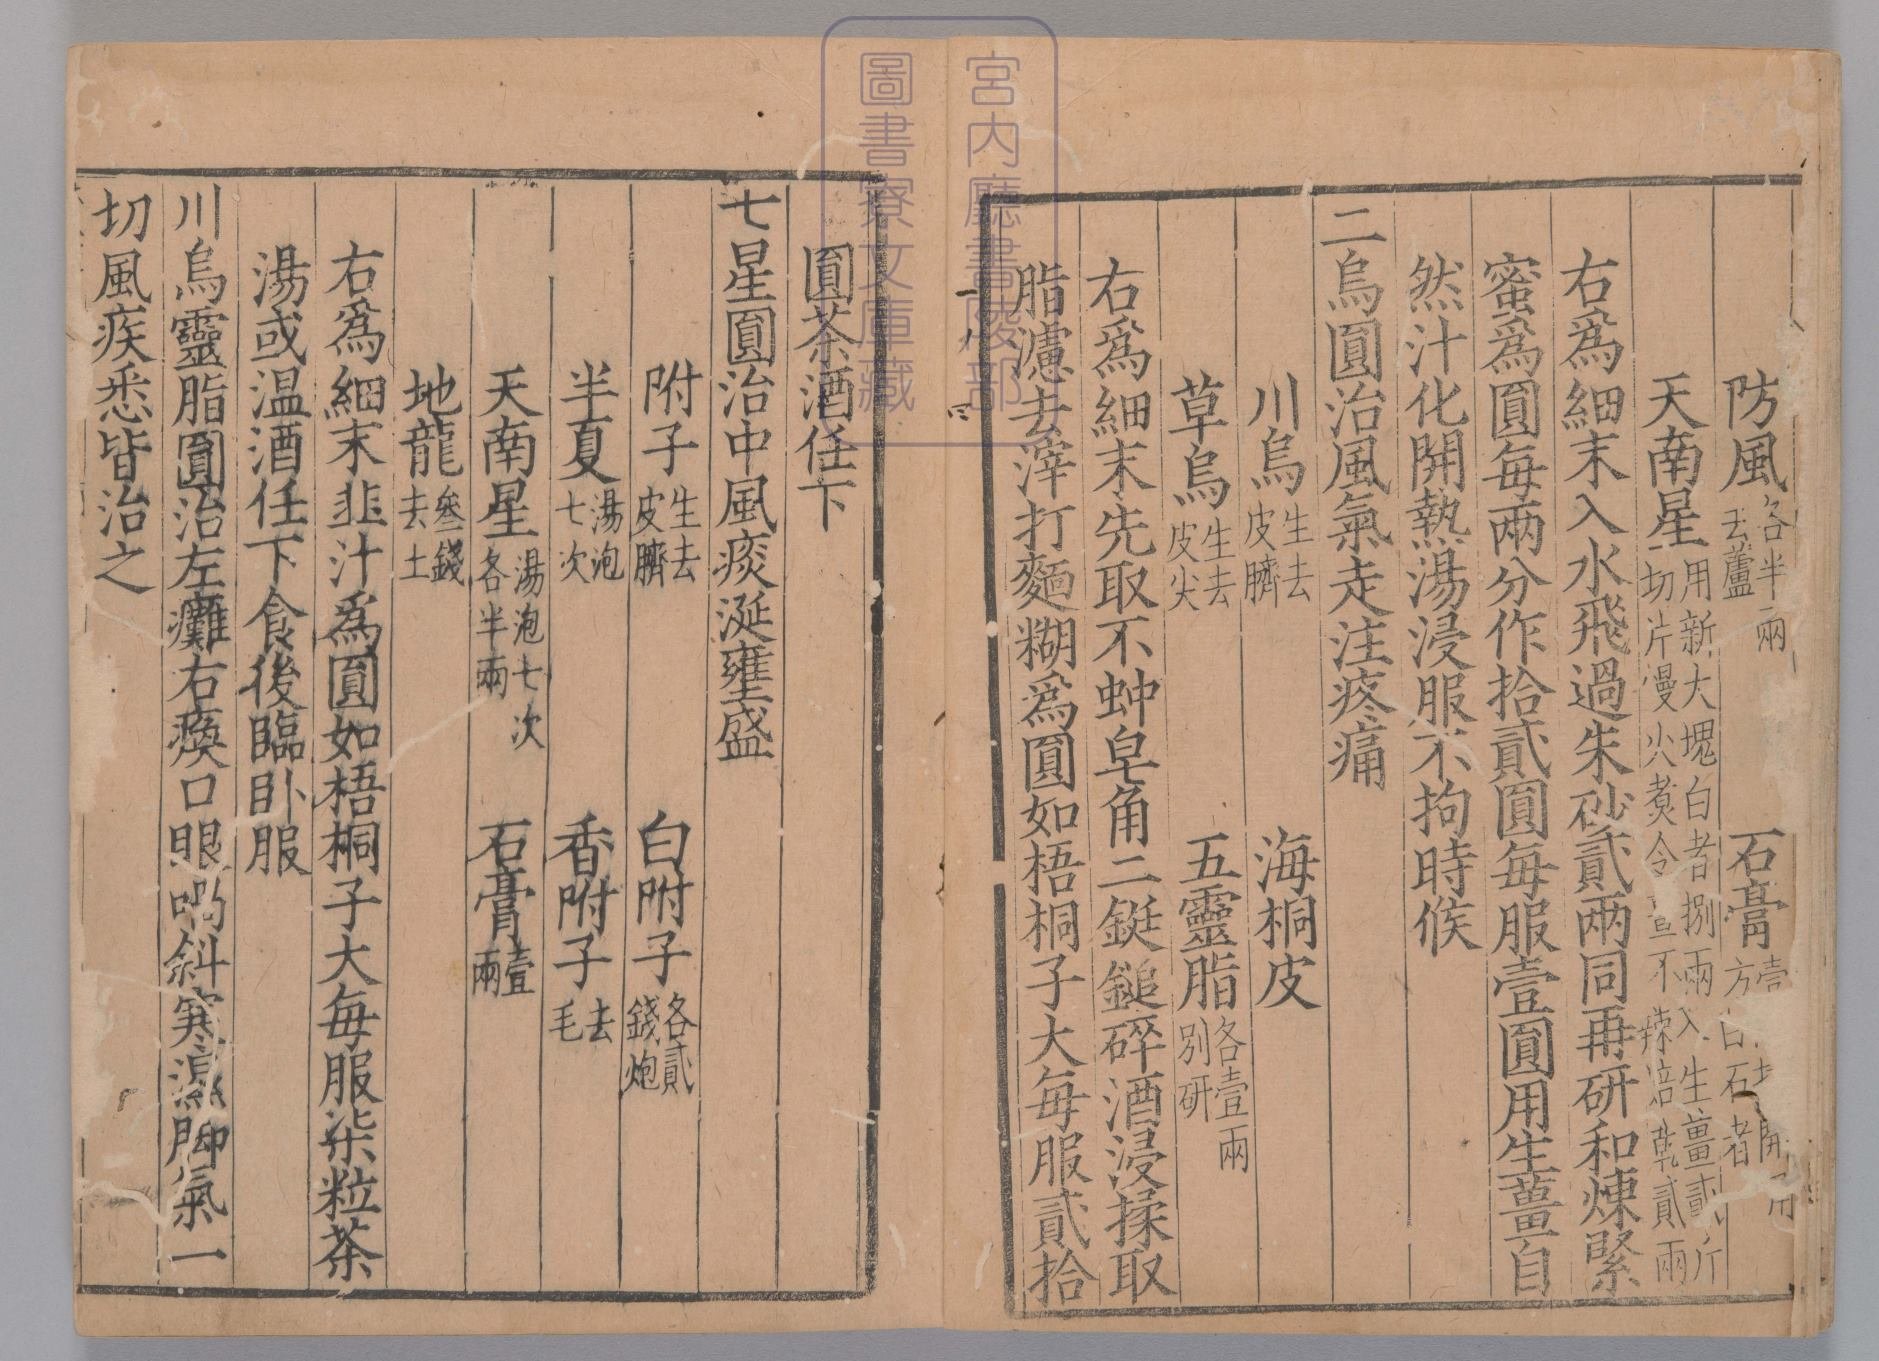 防風各半兩去蘆 石膏壹 方 白石者 開用
天南星用新大塊白者捌兩入生薑貳斤切片漫火煮令 不辣焙乾貳兩
右爲細末入水飛過朱砂貳兩同再研和煉緊
蜜爲圓每兩分作拾貳圓每服壹圓用生薑自
然汁化開熱湯浸服不拘時候
二烏圓治風氣走注疼痛
川烏生去皮臍 海桐皮
草烏生去皮尖 五靈脂各壹兩別研
右爲細末先取不蚛皁角二鋌鎚碎酒浸揉取
脂濾去滓打麵糊爲圓如梧桐子大每服貳拾
圓茶酒任下
七星圓治中風痰涎壅盛
附子生去皮臍 白附子各貳錢炮
半夏湯泡七次 香附子去毛
天南星湯泡七次各半兩 石膏壹兩
地龍叄錢去土
右爲細末韭汁爲圓如梧桐子大每服柒粒茶
湯或温酒任下食後臨卧服
川烏靈脂圓治左癱右瘓口眼喎斜寒濕脚氣一
切風疾悉皆治之
宮内廳書陵部
圖書寮文庫藏